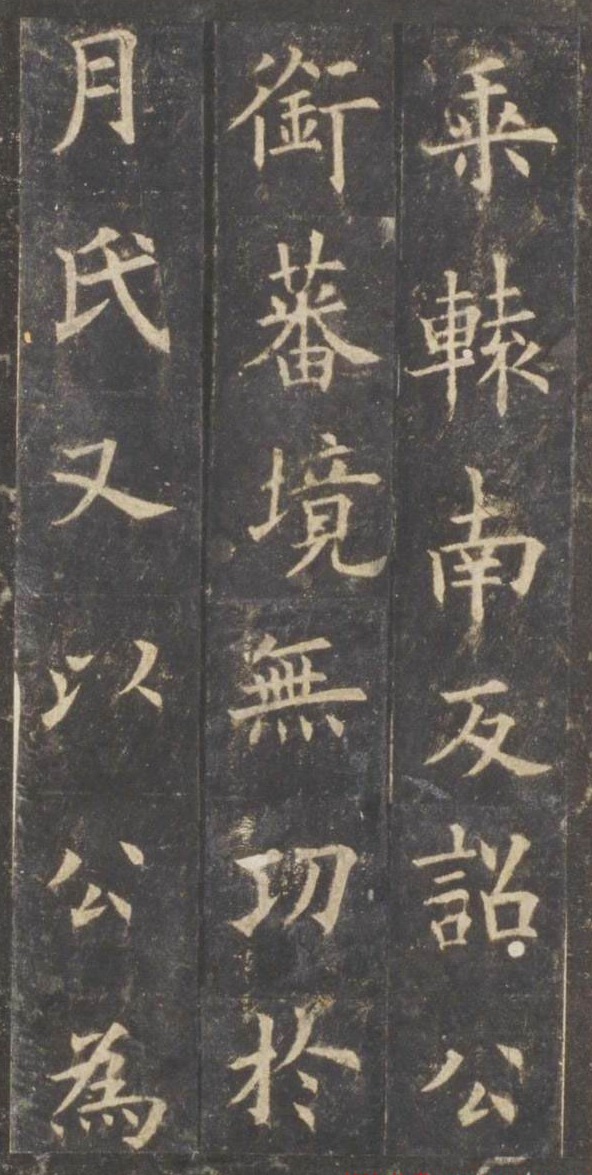 乘轅南反詔公
銜蕃境無功於
月氏又以公為